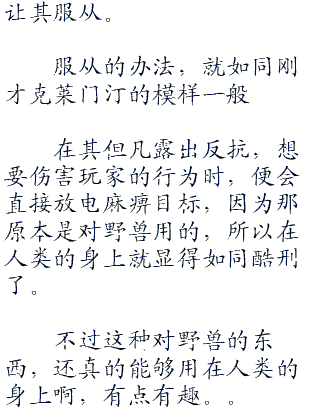 让其服从。
服从的办法，就如同刚
才克莱门汀的模样一般
在其但凡露出反抗，想
要伤害玩家的行为时，便会
直接放电麻痹目标，因为那
原本是对野兽用的，所以在
人类的身上就显得如同酷刑
了。
不过这种对野兽的东
西，还真的能够用在人类的
身上啊，有点有趣。。